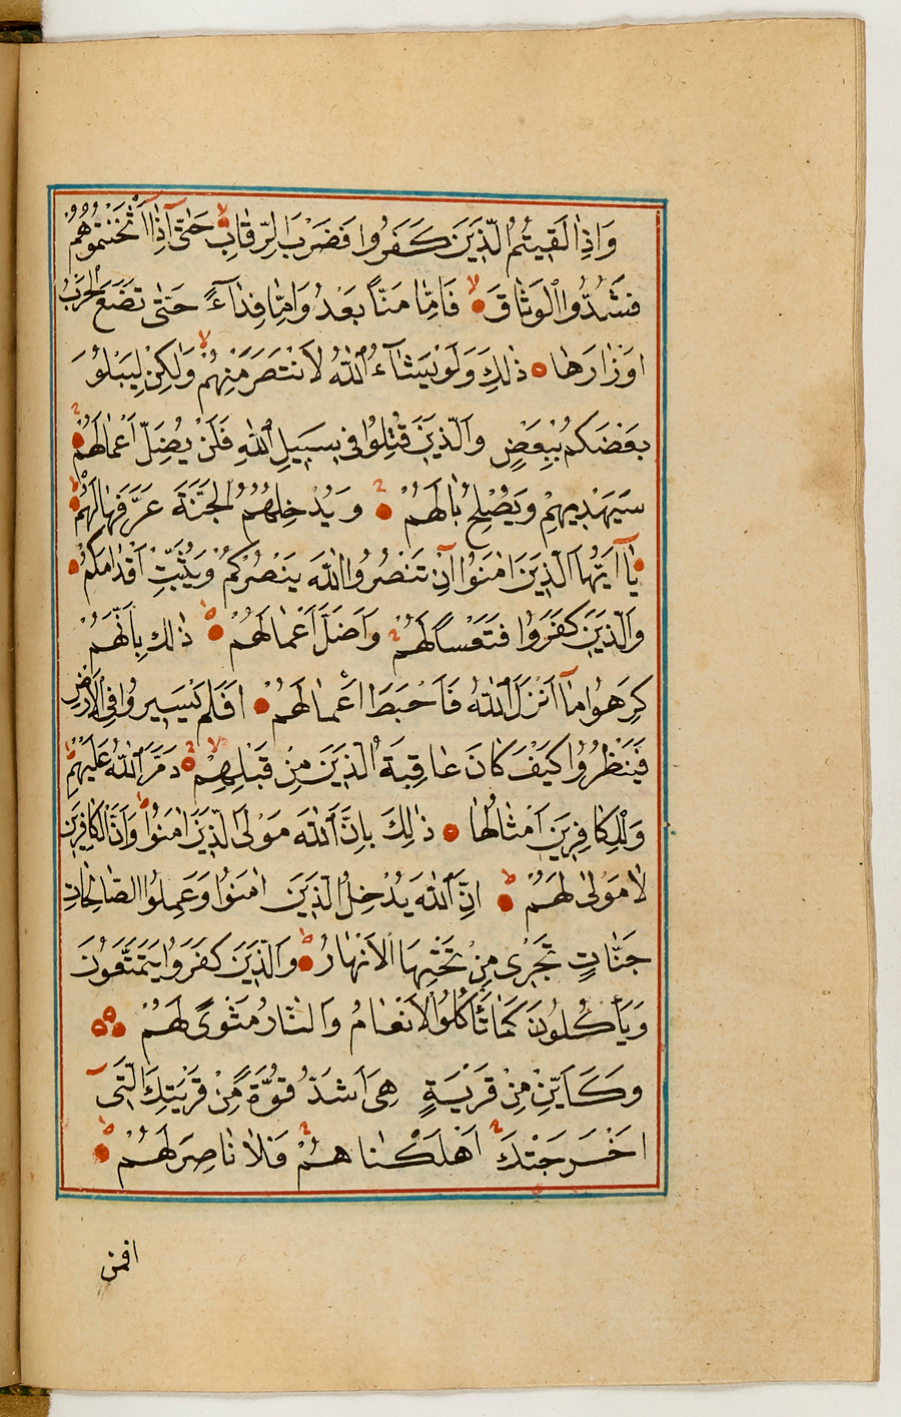 وَاِذَا لَقِيتُمُ الَّذِينَ كَفَرُوا فَضَرْبَ الرِّقَابِ حَتّٰى اِذَا اَثْخَنْتُمُوهُمْ
فَشُدُّوا الْوَثَاقَ فَاِمَّا مَنًّا بَعْدُ وَاِمَّا فِدَاۤءً حَتّٰى تَضَعَ الْحَرْبُ
اَوْزَارَهَا ذٰلِكَ وَلَوْ يَشَاۤءُ اللّٰهُ لَانْتَصَرَ مِنْهُمْ وَلٰكِنْ لِيَبْلُوَ
بَعْضَكُمْ بِبَعْضٍ وَالَّذِينَ قُتِلُوا فِى سَبِيلِ اللّٰهِ فَلَنْ يُضِلَّ اَعْمَالَهُمْ
سَيَهْدِيهِمْ وَيُصْلِحُ بَالَهُمْ وَيُدْخِلُهُمُ الْجَنَّةَ عَرَّفَهَا لَهُمْ
يَاۤ اَيُّهَا الَّذِينَ اٰمَنُوۤا اِنْ تَنْصُرُوا اللّٰهَ يَنْصُرْكُمْ وَيُثَبِّتْ اَقْدَامَكُمْ
وَالَّذِينَ كَفَرُوا فَتَعْسًا لَهُمْ وَاَضَلَّ اَعْمَالَهُمْ ذٰلِكَ بِاَنَّهُمْ
كَرِهُوا مَاۤ اَنْزَلَ اللّٰهُ فَاَحْبَطَ اَعْمَالَهُمْ اَفَلَمْ يَسِيرُوا فِى الْاَرْضِ
فَيَنْظُرُوا كَيْفَ كَانَ عَاقِبَةُ الَّذِينَ مِنْ قَبْلِهِمْ دَمَّرَ اللّٰهُ عَلَيْهِمْ
وَلِلْكَافِرِينَ اَمْثَالُهَا ذٰلِكَ بِاَنَّ اللّٰهَ مَوْلَى الَّذِينَ اٰمَنُوا وَاَنَّ الْكَافِرِينَ
لَا مَوْلٰى لَهُمْ اِنَّ اللّٰهَ يُدْخِلُ الَّذِينَ اٰمَنُوا وَعَمِلُوا الصَّالِحَاتِ
جَنَّاتٍ تَجْرِى مِنْ تَحْتِهَا الْاَنْهَارُ وَالَّذِينَ كَفَرُوا يَتَمَتَّعُونَ
وَيَأْكُلُونَ كَمَا تَأْكُلُ الْاَنْعَامُ وَالنَّارُ مَثْوًى لَهُمْ
وَكَاَيِّنْ مِنْ قَرْيَةٍ هِىَ اَشَدُّ قُوَّةً مِنْ قَرْيَتِكَ الَّتِىۤ
اَخْرَجَتْكَ اَهْلَكْنَاهُمْ فَلَا نَاصِرَ لَهُمْ
افمن